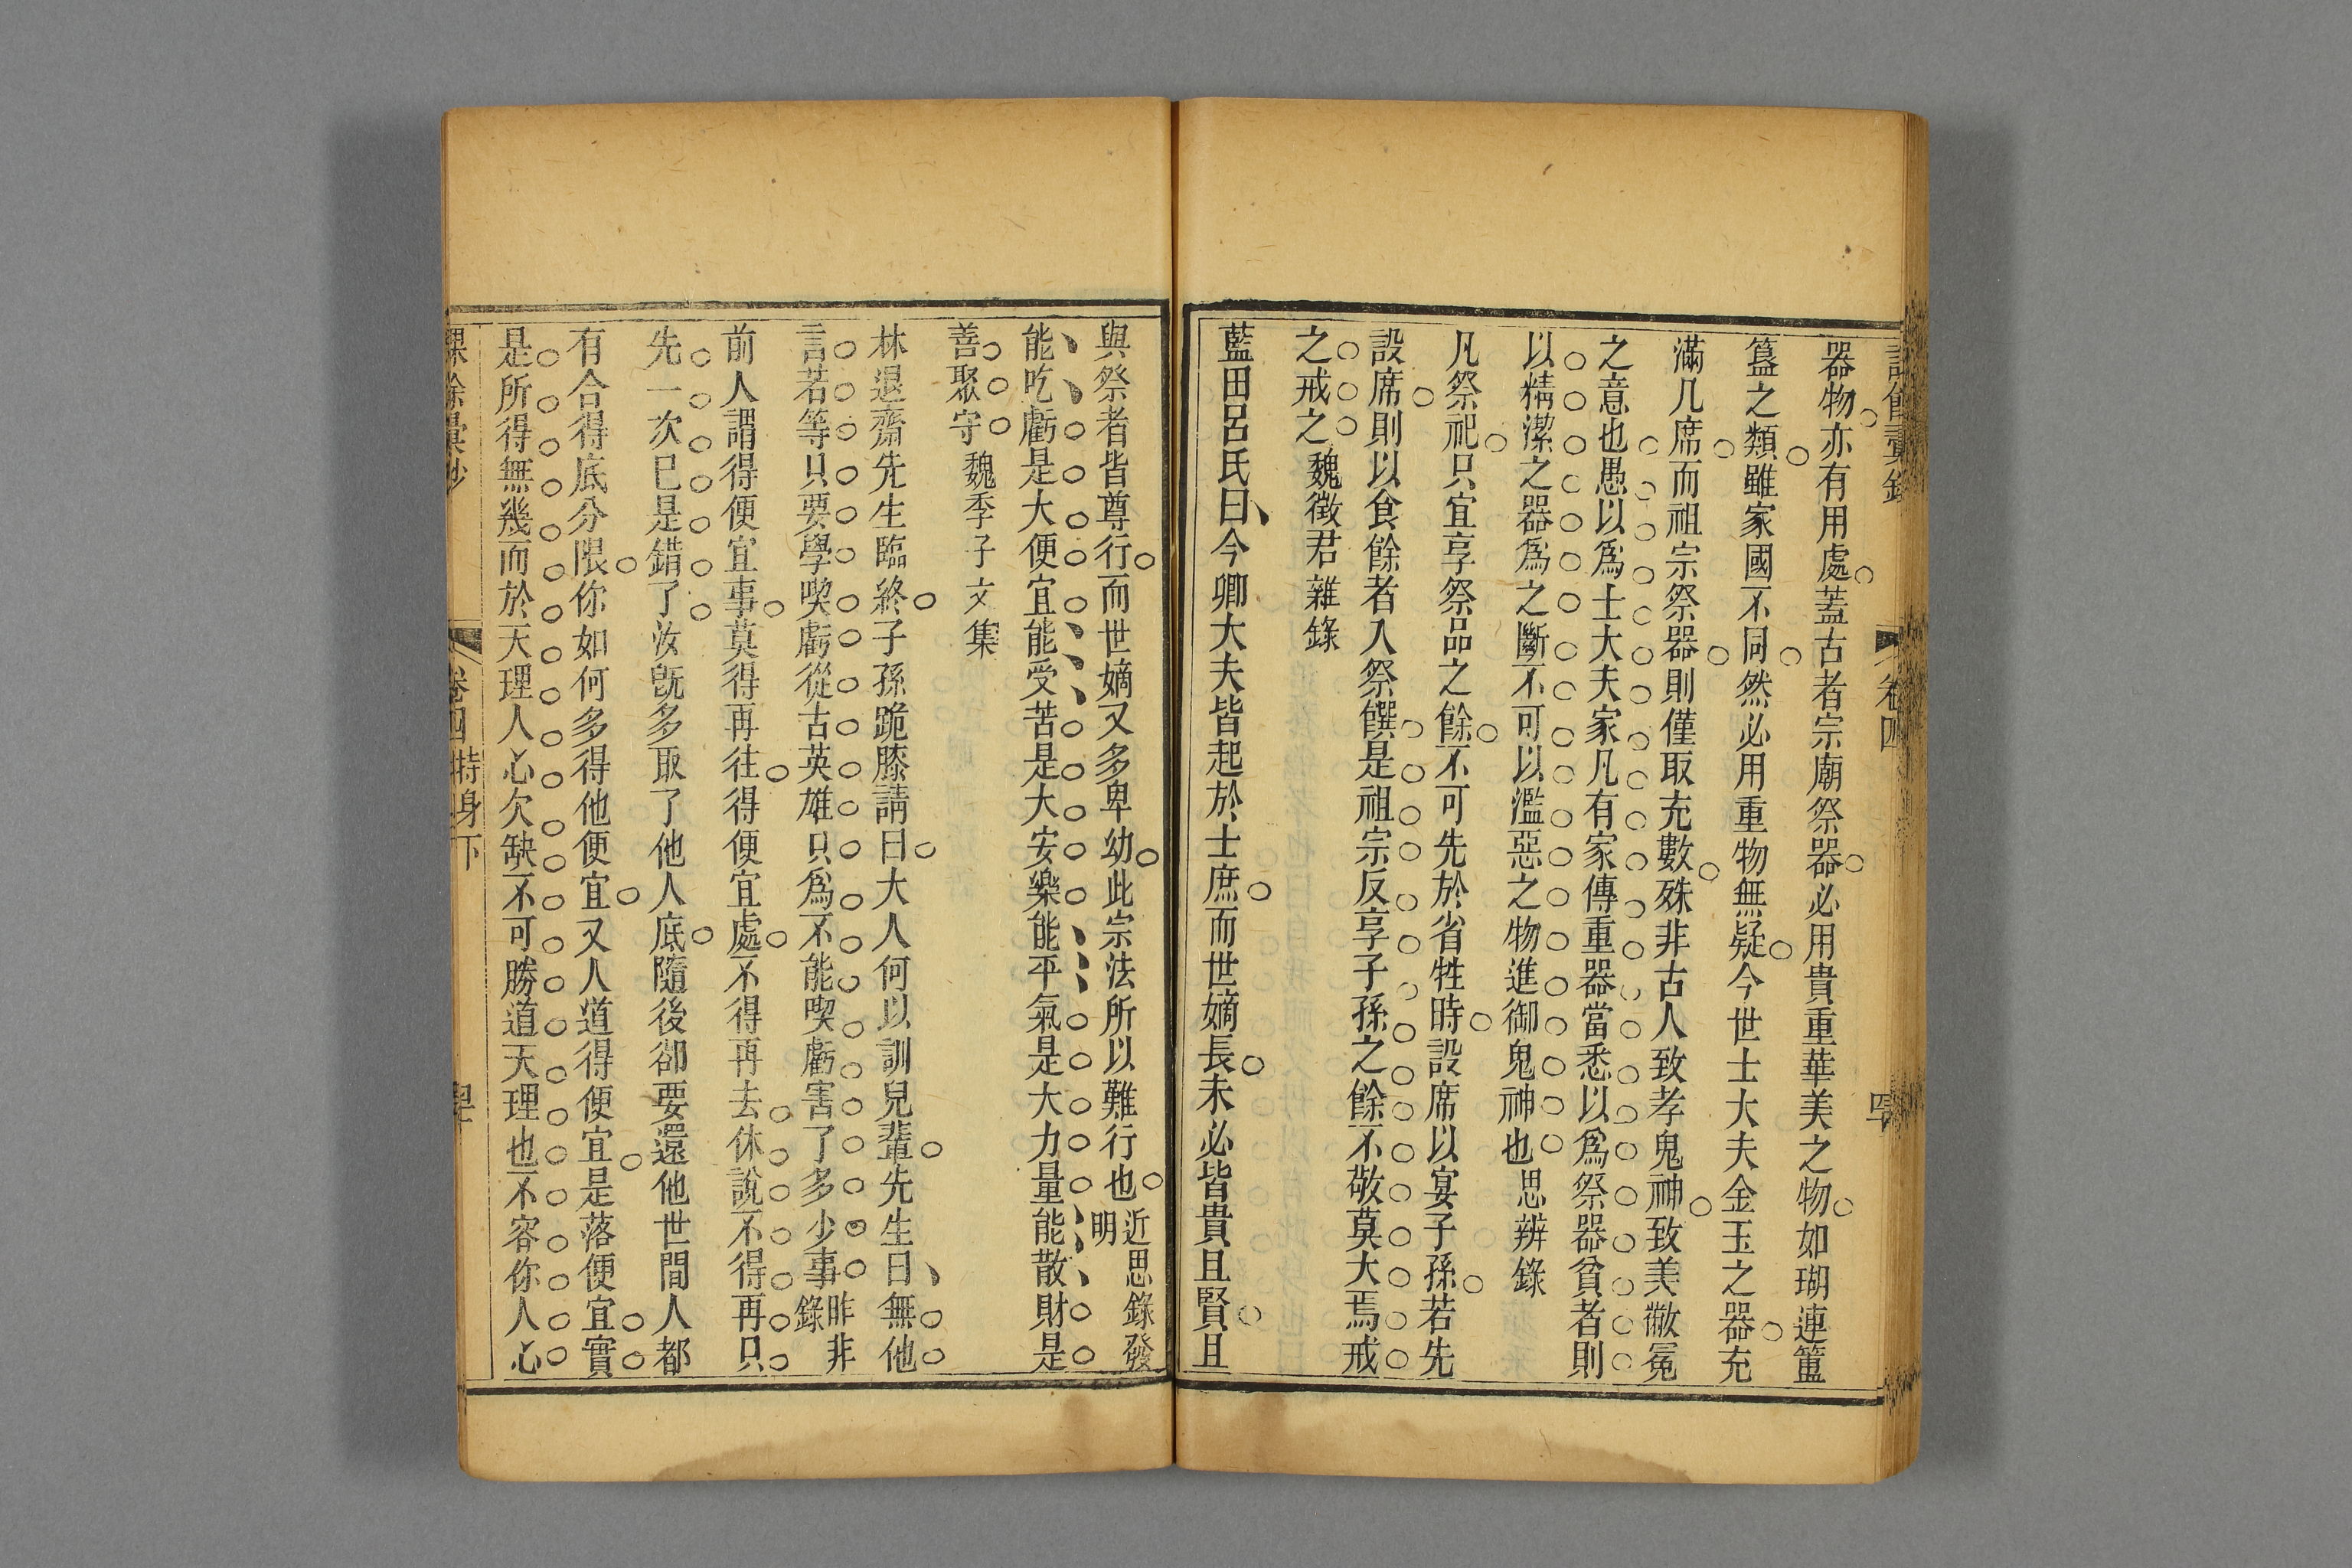 卷四
器物亦有用處蓋古者宗廟祭器必用貴重華美之物如瑚連簠
簋之類雖家國不同然必用重物無疑今世士大夫金玉之器充
滿几席而祖宗祭器則僅取充數殊非古人致孝鬼神致美黻冕
之意也愚以爲士大夫家凡有家傳重器當悉以爲祭器貧者則
以精潔之器爲之斷不可以濫惡之物進御鬼神也思辨錄
凡祭祀只宜享祭品之餘不可先於省牲時設席以宴子孫若先
設席則以食餘者入祭饌是祖宗反享子孫之餘不敬莫大焉戒
之戒之魏徵君雜錄
藍田呂氏曰今卿大夫皆起於士庶而世嫡長未必皆貴且賢且
與祭者皆尊行而世嫡又多卑幼此宗法所以難行也近思錄發明
能吃虧是大便宜能受苦是大安樂能平氣是大力量能散財是
善聚守魏季子文集
林退齋先生臨終子孫跪膝請曰大人何以訓兒輩先生曰無他
言若等只要學喫虧從古英雄只爲不能喫虧害了多少事昨非錄
前人謂得便宜事莫得再往得便宜處不得再去休說不得再只
先一次已是錯了汝旣多取了他人底隨後卻要還他世間人都
有合得底分限你如何多得他便宜又人道得便宜是落便宜實
是所得無幾而於天理人心欠缺不可勝道天理也不容你人心
卷四 持身下